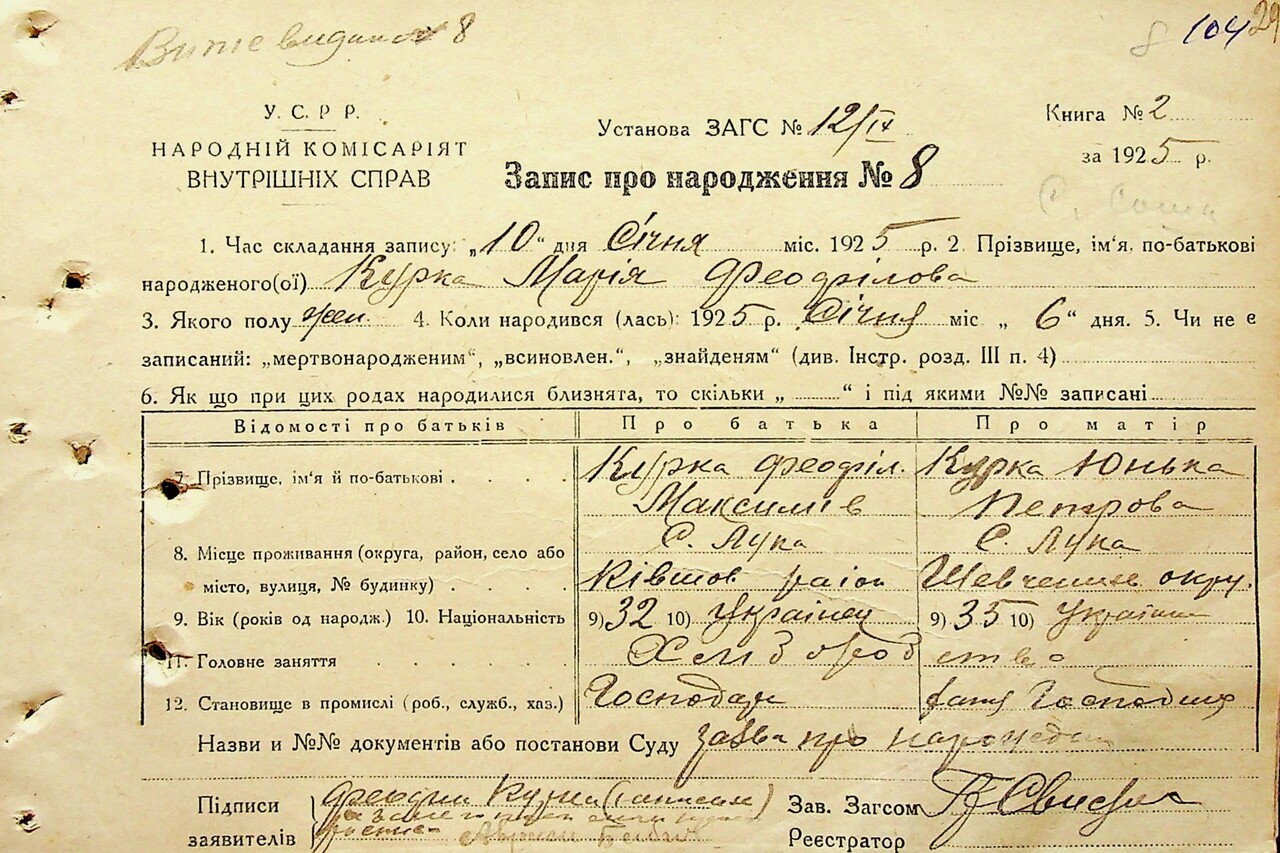 8 104 29
У. С. Р Р.
НАРОДНІЙ КОМІСАРІЯТ
ВНУТРІШНІХ СПРАВ
Установа ЗАГС № 12/IX
Запис про народження № 8
Книга № 2
за 1925 р.
1. Час складання запису: „10“ дня Січня міс. 1925 р. 2. Прізвище, ім'я, по-батькові
народженого(ої) Курка Марія Феофілова
3. Якого полу жен. 4. Коли народився (лась): 1925 р. Січня міс „ 6“ дня. 5. Чи не є
записаний: „мертвонародженим“, „всиновлен.“, „знайденям“ (див. Інстр. розд. III п. 4)
6. Як що при цих родах народилися близнята, то скільки „ “ і під якими №№ записані
Відомості про батьків Про батька Про матір
7. Прізвище, ім'я й по-батькові Курка Феофіл. Курка Юнька
Максимів Петрова
8. Місце проживання (округа, район, село або С. Лука С. Лука
місто, вулиця, № будинку) район Шевченк. окру.
9. Вік (років од народж.) 10. Національність 9) 32 10) Українец 9) 35 10) Україн
11. Головне заняття Хлібороб ство
12. Становище в промислі (роб., служб., хаз.) Господар
Назви и №№ документів або постанови Суду заява про народжен
Підписи Курка Зав. Загсом
заявителів Реєстратор